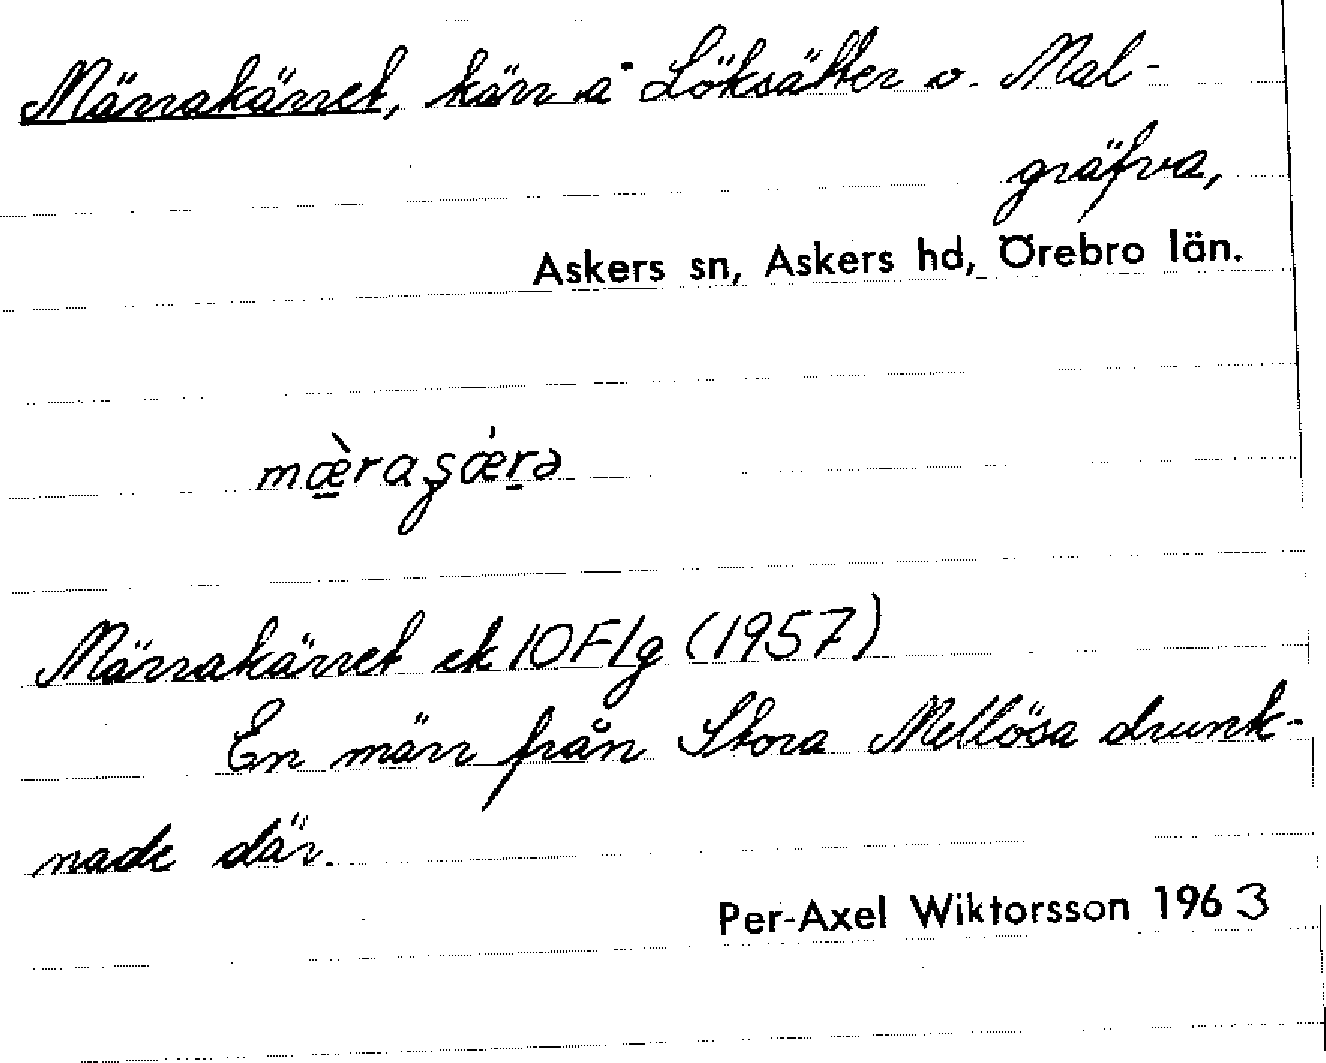 Märrakärret, kärr å Löksätter o. Mal-
gräfva,
Askers sn, Askers hd, Örebro län.
mæ̀raʂǽrə
Märrakärret ek 10F1g (1957)
En märr från Stora Mellösa drunk-
nade där.
Per-Axel Wiktorsson 1963